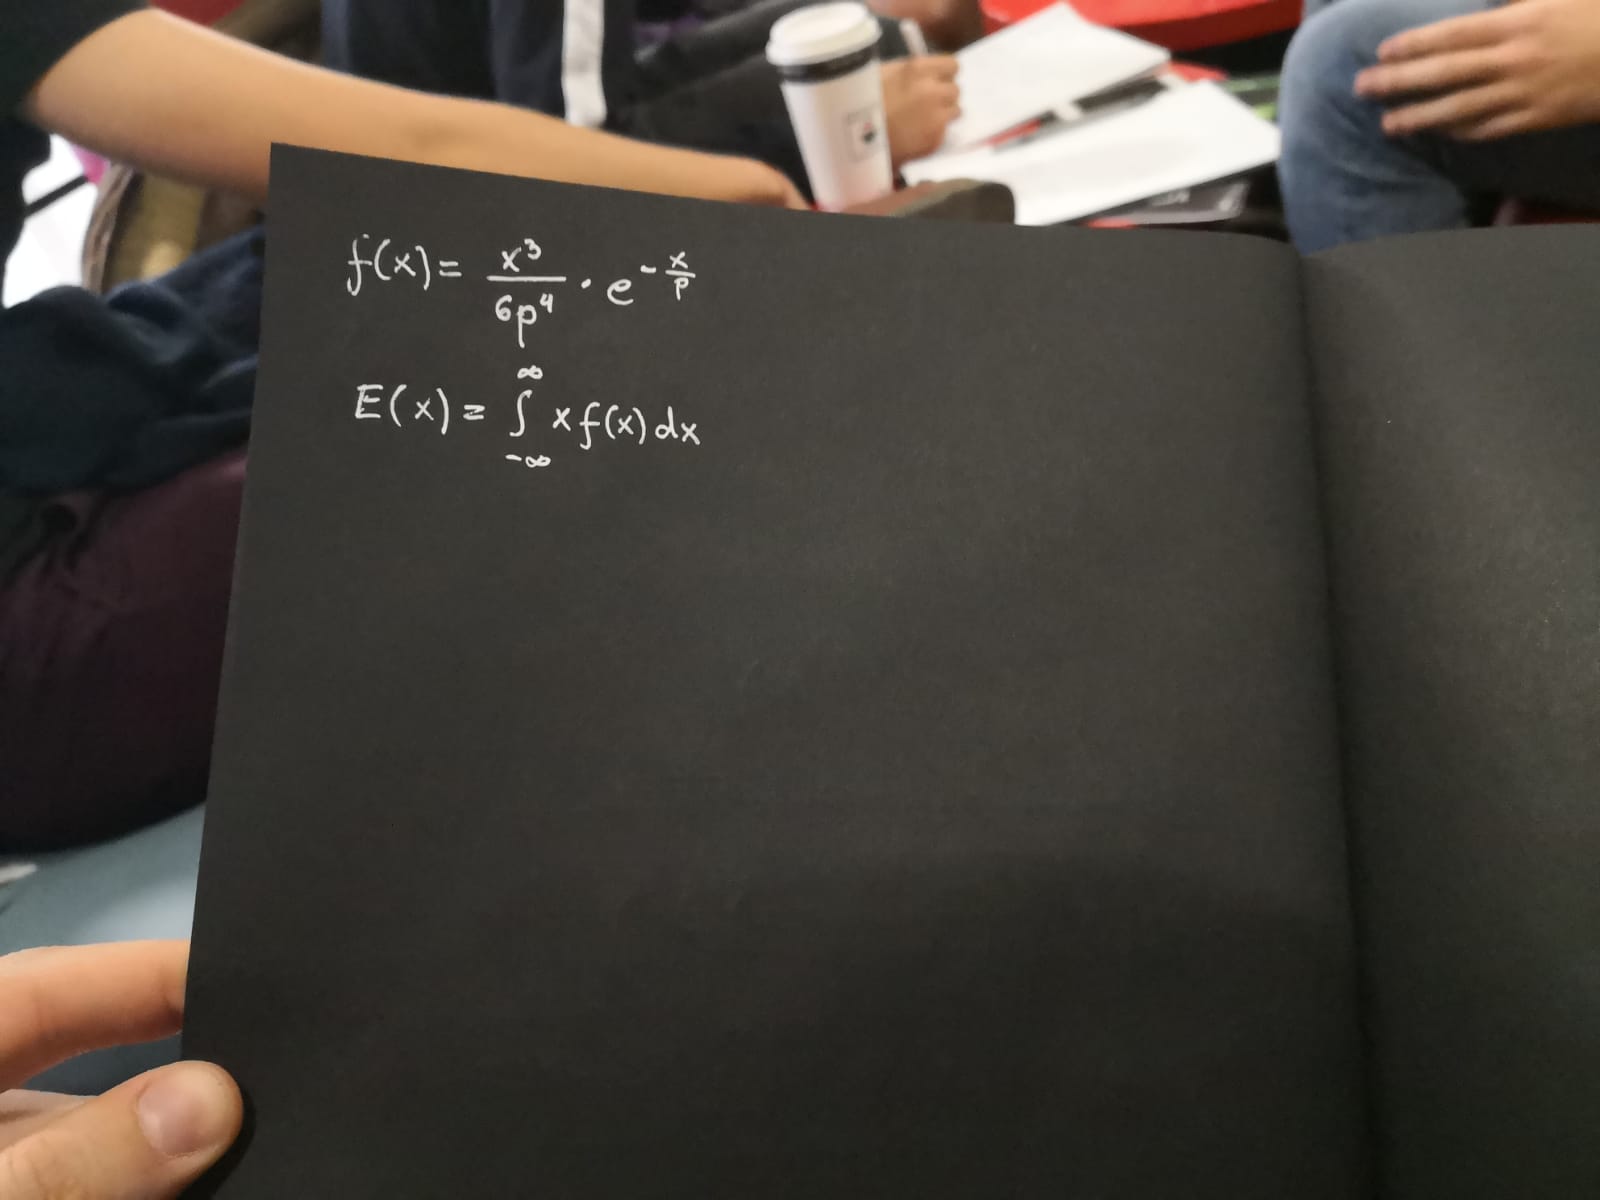 f(x) = x³/6p⁴ · e^(-x/p)
E(x) = ∫_{-∞}^{∞} x f(x) dx